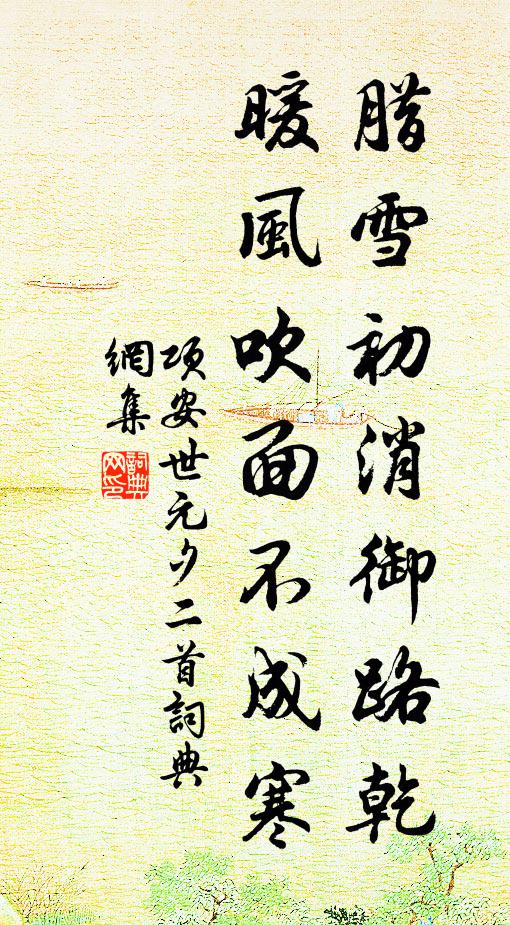 腊雪初消御路乾
暖風吹面不成寒
項安世元夕二首詞典
網集
詞典網印